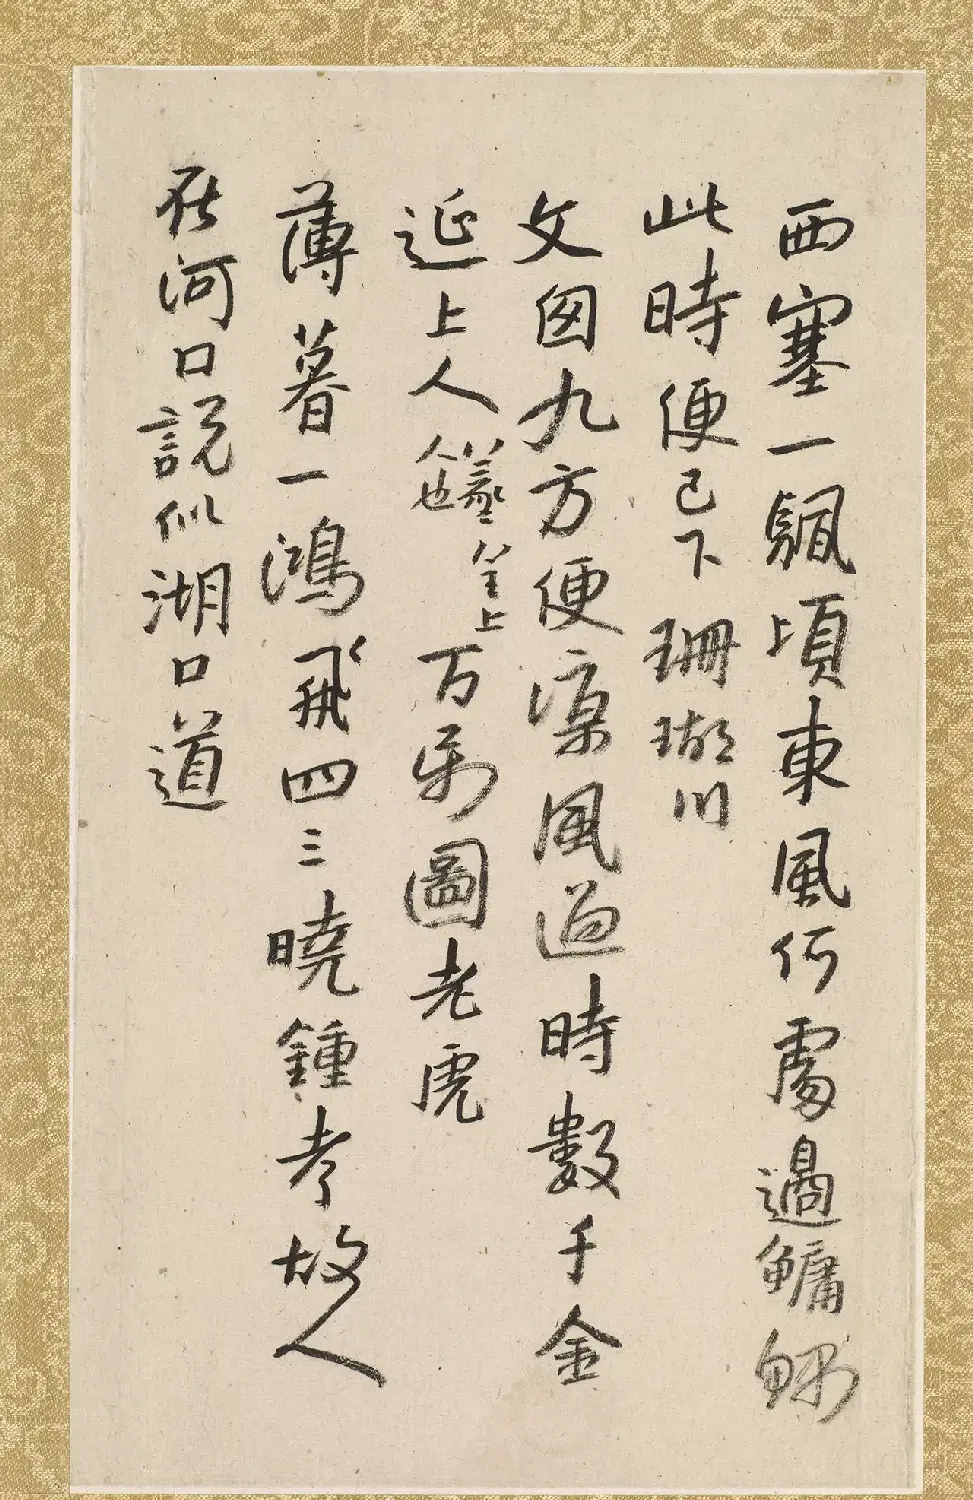 西塞一顆頃東風何處過鱅鰥
此時便已下珊瑚川
文囪九方便涼風過時數千金
延上人
万弟圖老虎
薄暮一鴻飛四三曉鍾孝故人
在河口說似湖口道